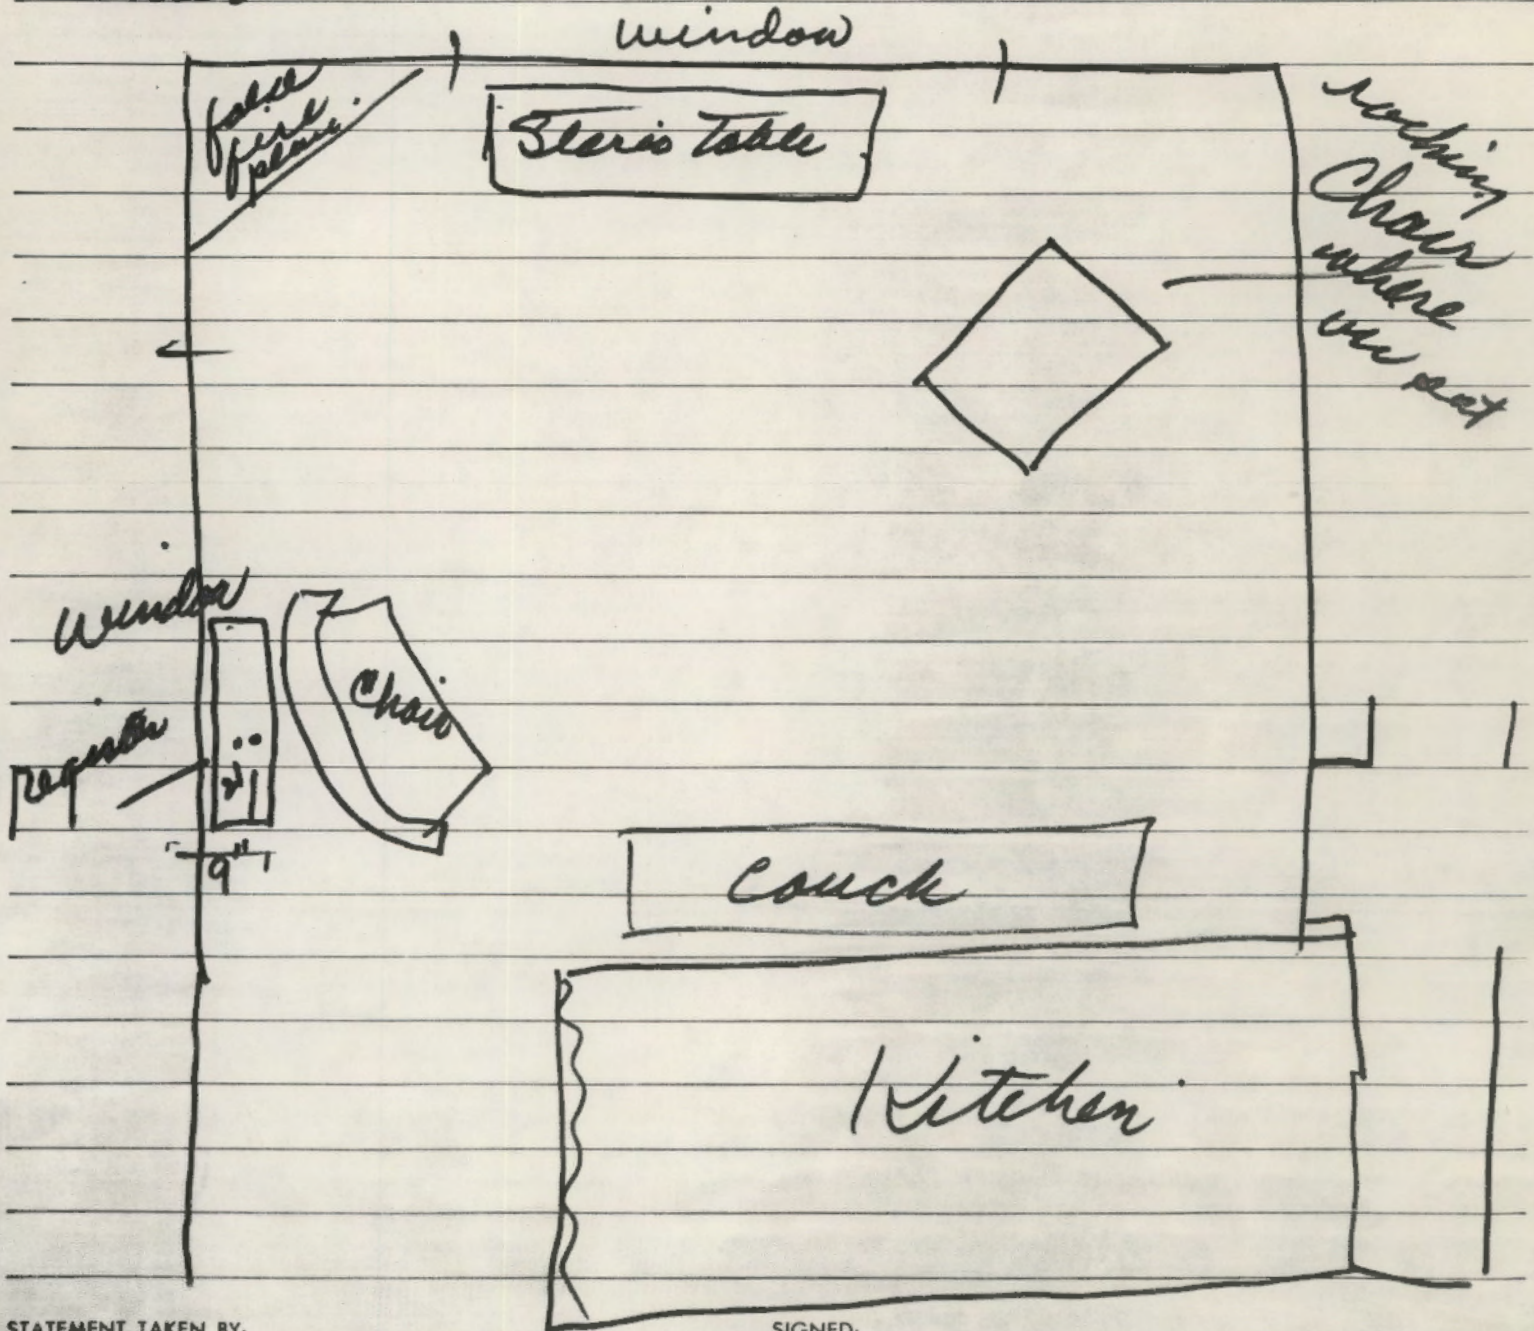 window
false
fire
place
Sterio Table
rocking
Chair
where
vic sat
window
Chair
register
2'
9"
Couch
Kitchen
STATEMENT TAKEN BY:
SIGNED: